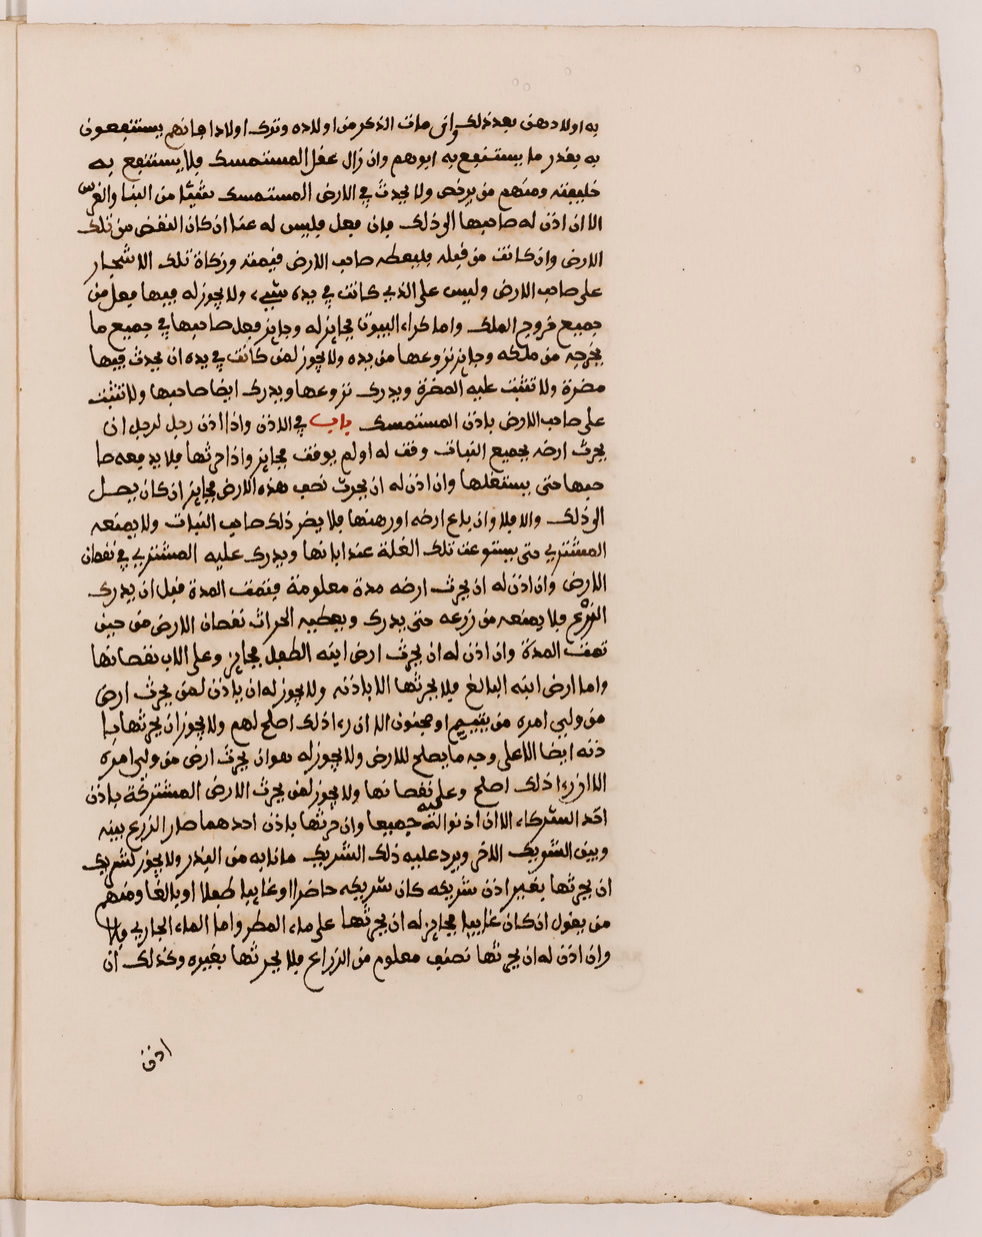 به اولادهن بعد ذلك وان مات الذكر من اولاده وترك اولادا فانهم يستنفعون
به بقدر ما يستنفع به ابوهم وان زال عقل المستمسك فلا يستنفع به
خليفته ومنهم من يرخص ولا يحدث في الارض المستمسك شيئا من البنا والغرس
الا ان اذن له صاحبها الى ذلك فان فعل فليس له عنا ان كان النقض من تلك
الارض وان كانت من قبله فليعطه صاحب الارض قيمته وزكاة تلك الاشجار
على صاحب الارض وليس على الذي كانت في يده شيء ولا يجوز له فيها فعل من
جميع خروج الملك واما كراء البيوت فجايز له وجايز فعل صاحبها في جميع ما
يخرجه من ملكه وجايز نزوعها من يده ولا يجوز لمن كانت في يده ان يحدث فيها
مضرة ولا تثبت عليه المضرة ويدرك نزوعها ويدرك ايضا صاحبها ولا تثبت
على صاحب الارض باذن المستمسك باب في الاذن واذا اذن رجل لرجل ان
يحرث ارضه بجميع النبات وقت له او لم يوقت فجايز واذا حرثها فلا يدفعه صا
حبها حتى يستغلها وان اذن له ان يحرث نصف هذه الارض فجايز ان كان يصل
الى ذلك والا فلا وان باع ارضه او رهنها فلا يضر ذلك صاحب النبات ولا يمنعه
المشتري حتى يستوعب تلك الغلة عند ابانها ويدرك عليه المشتري في نقصان
الارض وان اذن له ان يحرث ارضه مدة معلومة فتمت المدة قبل ان يدرك
الزرع فلا يمنعه من زرعه حتى يدرك ويعطيه الحراث نقصان الارض من حين
تمت المدة وان اذن له ان يحرث ارض ابنه الطفل فجايز وعلى الاب نقصانها
واما ارض ابنه البالغ فلا يحرثها الا باذنه ولا يجوز له ان ياذن لمن يحرث ارض
من ولي امره من يتيم او مجنون الا ان رءا ذلك اصلح لهم ولا يجوز ان يحرثها با
ذنه ايضا الا على وجه ما يصلح للارض ولا يجوز له هو ان يحرث ارض من ولي امره
الا ان رءا ذلك اصلح وعليه نقصانها ولا يجوز لمن يحرث الارض المشتركة باذن
احد الشركاء الا ان اذنوا له جميعا وان حرثها باذن احدهما صار الزرع بينه
وبين الشريك الاخر ويرد عليه ذلك الشريك ما نابه من البذر ولا يجوز لشريك
ان يحرثها بغير اذن شريكه كان شريكه حاضرا او غايبا طفلا او بالغا ومنهم
من يقول ان كان غايبا فجايز له ان يحرثها على ماء المطر واما الماء الجاري فلا
وان اذن له ان يحرثها بصنف معلوم من الزرايع فلا يحرثها بغيره وكذلك ان
اذن